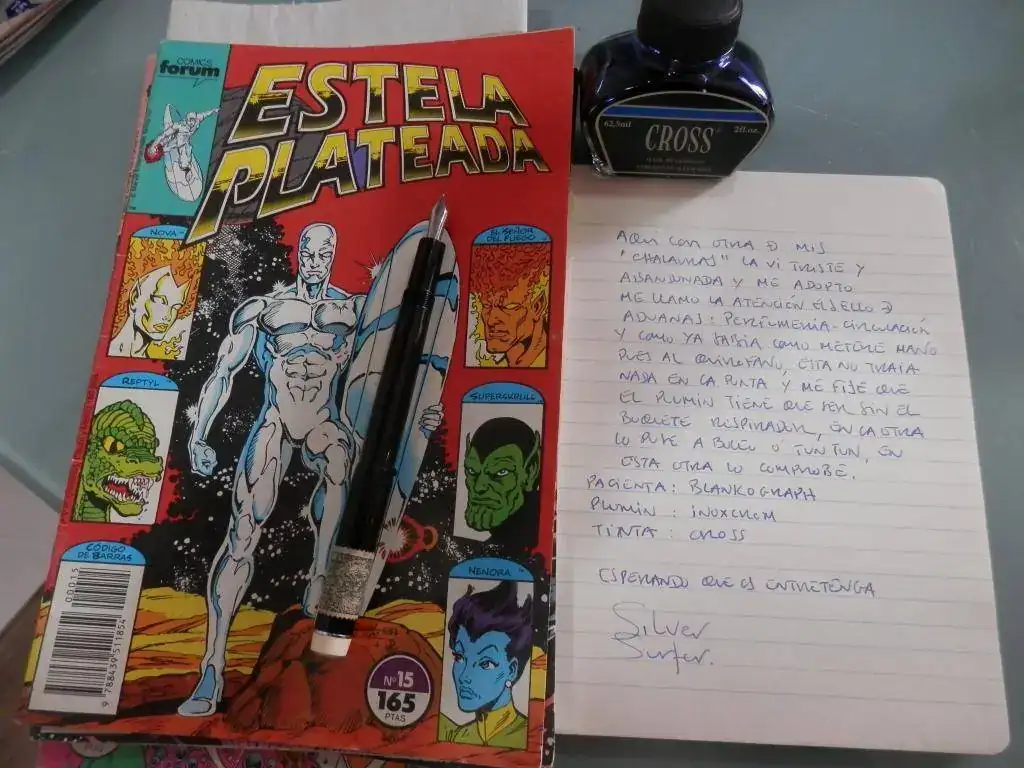 COMICS
forum
ESTELA
PLATEADA
NOVA
EL SEÑOR
DEL FUEGO
REPTYL
SUPERSKRULL
CÓDIGO
DE BARRAS
00015
9 788439 511854
NENORA
Nº 15
165
PTAS
62,5ml
CROSS
2fl.oz.
AQUI CON OTRA D MIS
"CHALAURAS" LA VI TRISTE Y
ABANDONADA Y ME ADOPTO
ME LLAMO LA ATENCIÓN EL SELLO D
ADUANAS: PERFUMERIA-CIRCULACIÓN
Y COMO YA SABIA COMO METERE MANO
PUES AL QUIROFANO, ESTA NO TRAIA
NADA EN LA PUNTA Y ME FIJE QUE
EL PLUMIN TIENE QUE SER SIN EL
BUQUETE RESPIRADOR, EN LA OTRA
LO PUSE A BULEO O TUNTUN, EN
ESTA OTRA LO COMPROBE.
PACIENTA: BLANKOGRAPH
PLUMIN: INOXCROM
TINTA: CROSS
ESPERANDO QUE OS ENTRETENGA
Silver
Surfer.